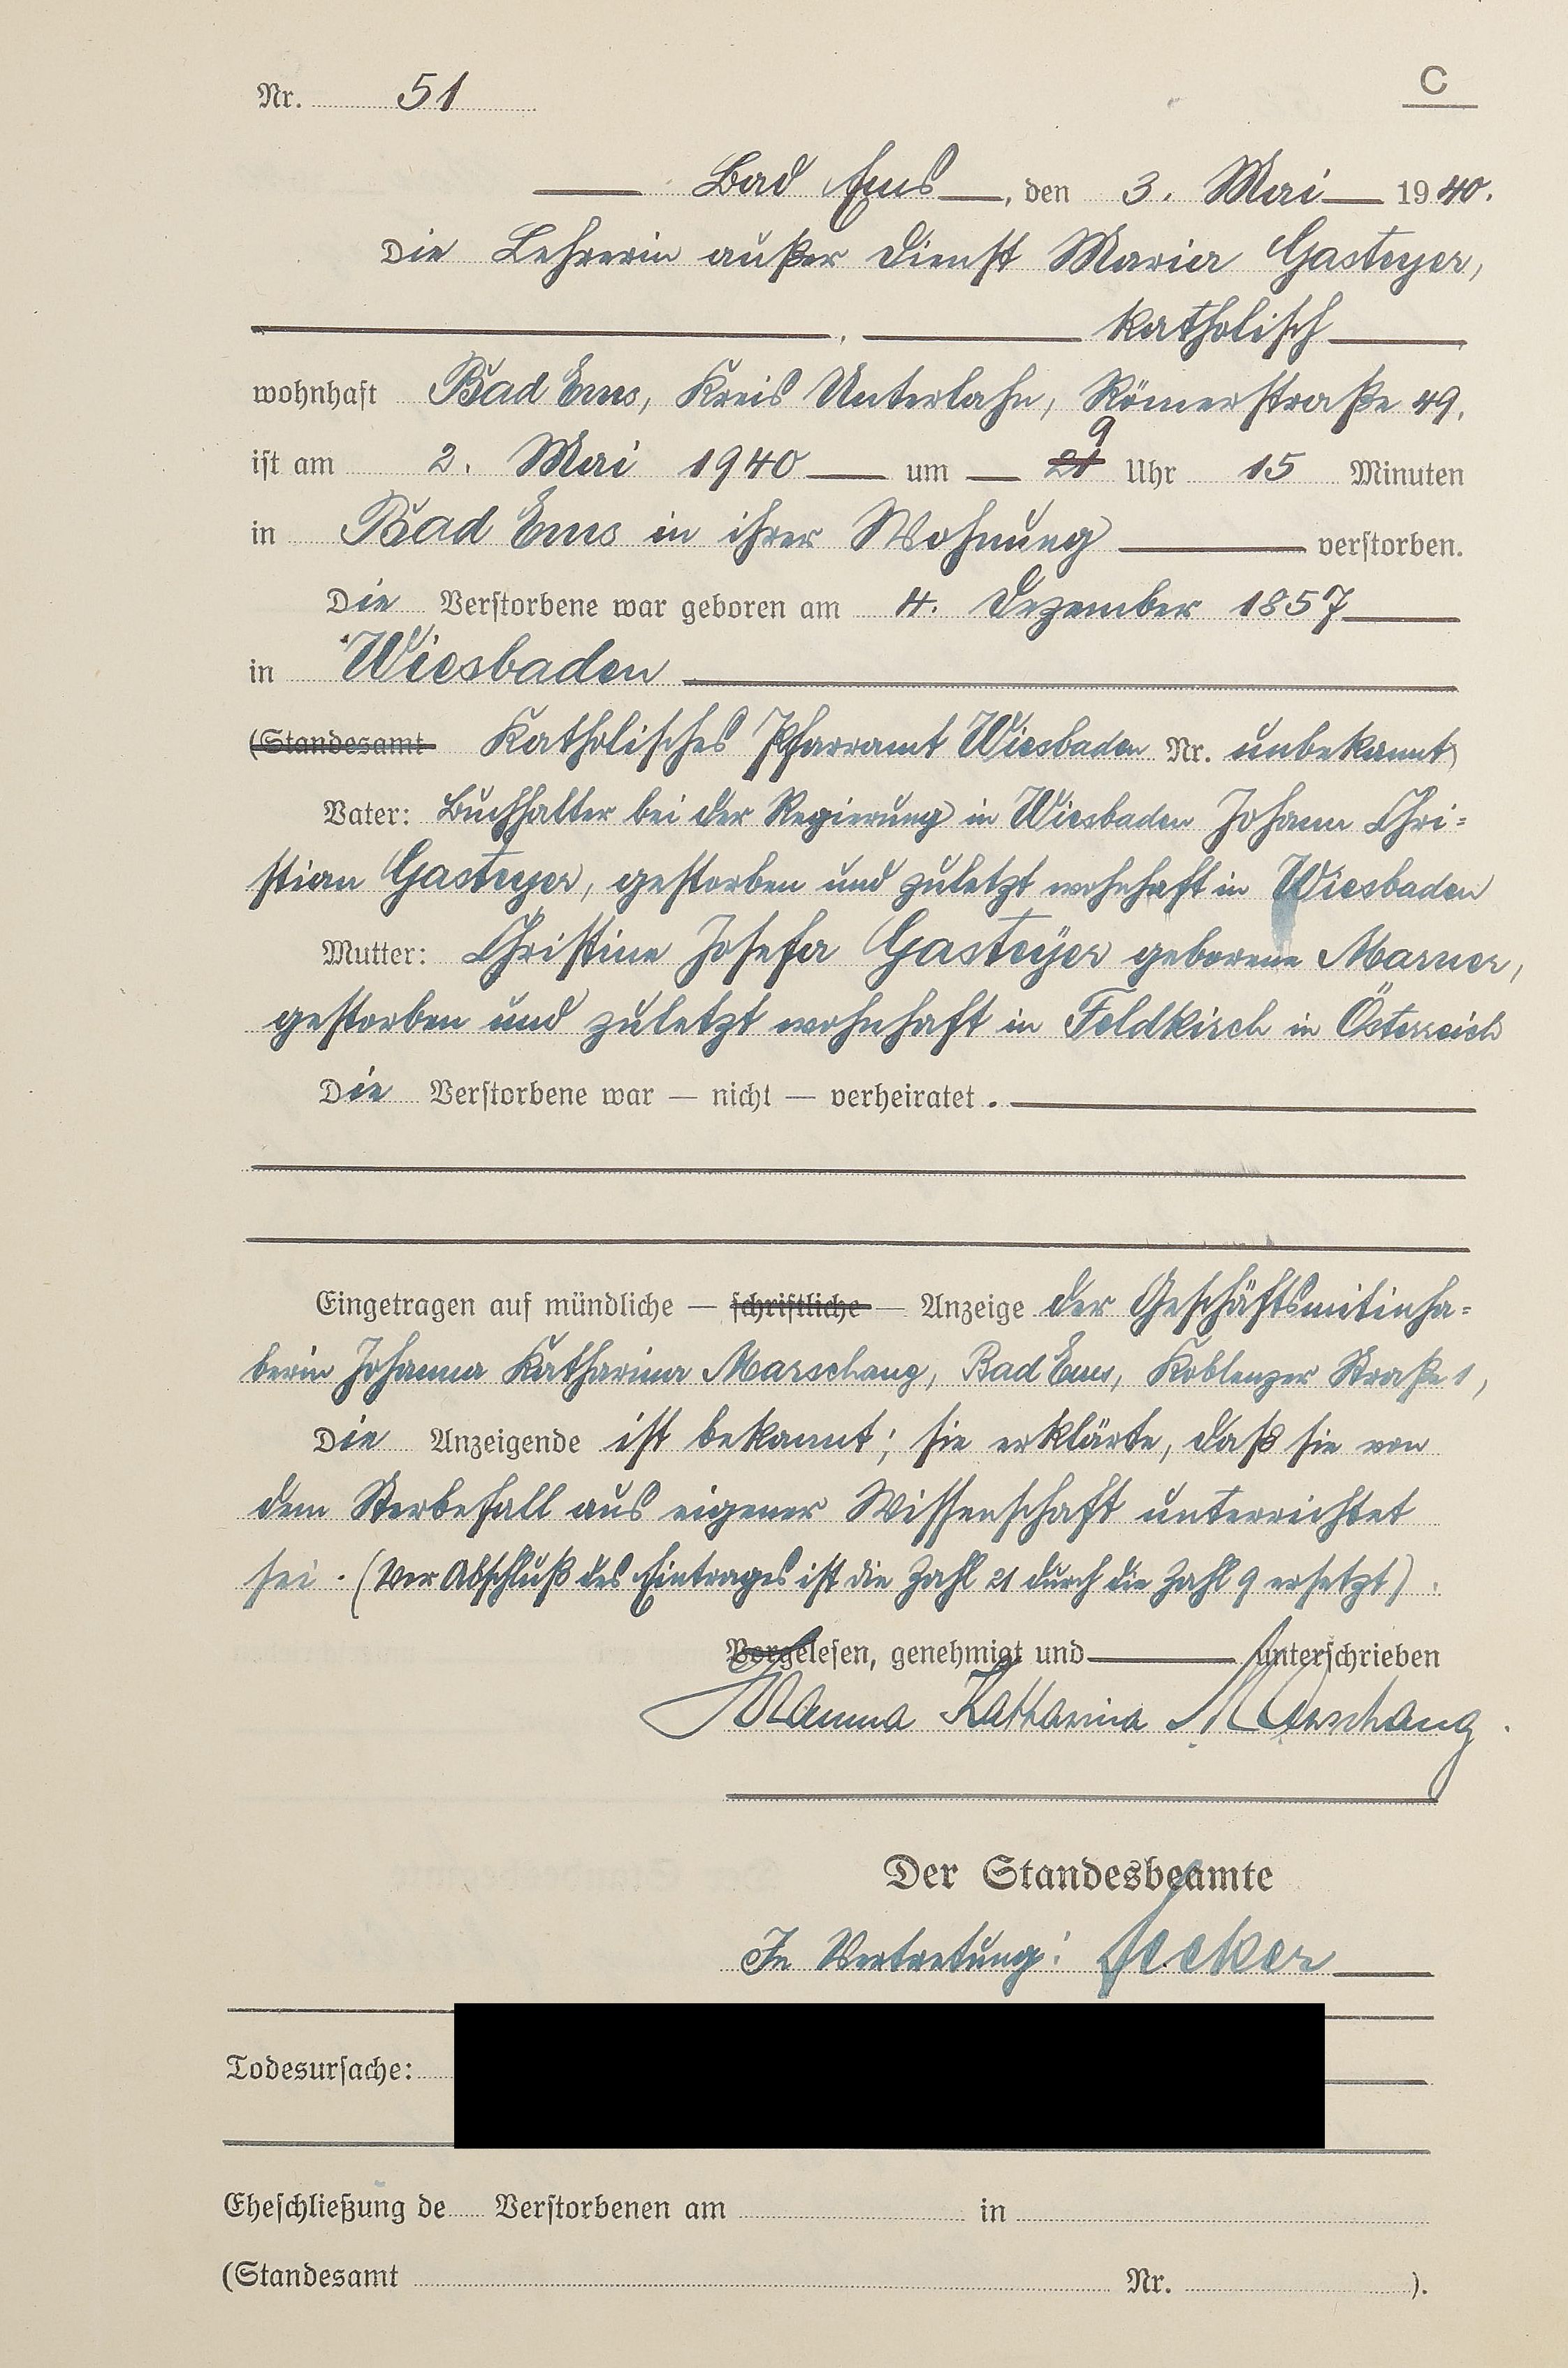 Nr. 51
C
Bad Ems, den 3. Mai 1940.
Die Lehrerin außer Dienst Maria Gasteyer,
, katholisch
wohnhaft Bad Ems, Kreis Unterlahn, Römerstraße 49,
9
ist am 2. Mai 1940 um 21 Uhr 15 Minuten
in Bad Ems in ihrer Wohnung verstorben.
Die Verstorbene war geboren am 4. Dezember 1857
in Wiesbaden
(Standesamt Katholisches Pfarramt Wiesbaden Nr. unbekannt)
Vater: Buchhalter bei der Regierung in Wiesbaden Johann Chri=
stian Gasteyer, gestorben und zuletzt wohnhaft in Wiesbaden
Mutter: Christine Josefa Gasteÿer geborene Marner,
gestorben und zuletzt wohnhaft in Feldkirch in Österreich
Die Verstorbene war — nicht — verheiratet.
Eingetragen auf mündliche — schriftliche — Anzeige der Geschäftsmitinha=
berin Johanna Katharina Marschang, Bad Ems, Koblenzer Straße 1,
Die Anzeigende ist bekannt; sie erklärte, daß sie von
dem Sterbefall aus eigener Wissenschaft unterrichtet
sei. (Vor Abschluß des Eintrages ist die Zahl 21 durch die Zahl 9 ersetzt).
Vorgelesen, genehmigt und unterschrieben
Katharina Marschang.
Der Standesbeamte
In Vertretung:
Todesursache:
Eheschließung de Verstorbenen am in
(Standesamt Nr. ).